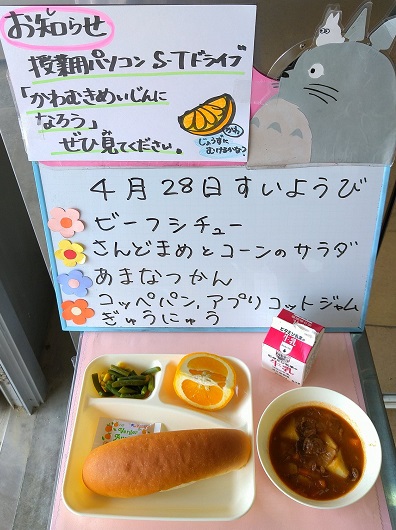 お知らせ
授業用パソコン S-Tドライブ
「かわむきめいじんに
なろう」
ぜひ見てください。
かわ
じょうずに
むけるかな？
4月28日すいようび
ビーフシチュー
さんどまめとコーンのサラダ
あまなつかん
コッペパン,アプリコットジャム
ぎゅうにゅう
牛乳